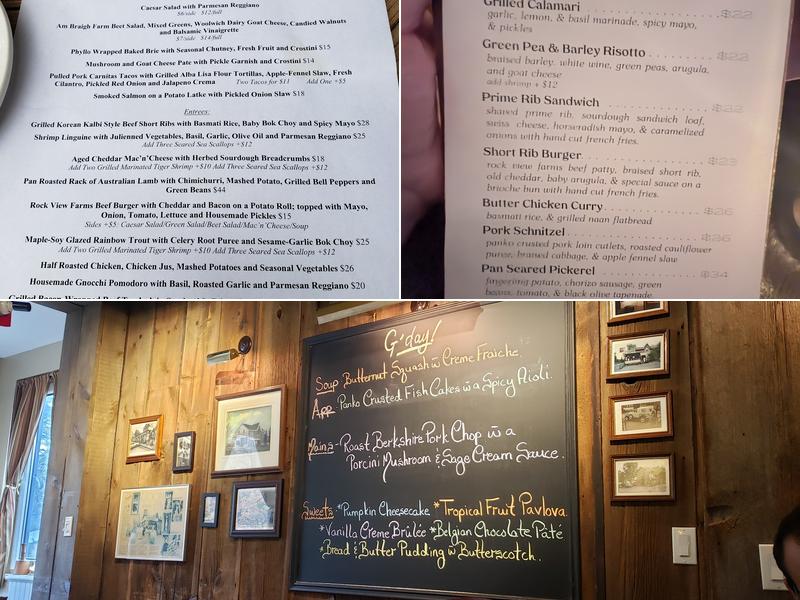 Caesar Salad with Parmesan Reggiano
$6/side $12/full
Am Braigh Farm Beet Salad, Mixed Greens, Woolwich Dairy Goat Cheese, Candied Walnuts
and Balsamic Vinaigrette
$7/side $14/full
Phyllo Wrapped Baked Brie with Seasonal Chutney, Fresh Fruit and Crostini $15
Mushroom and Goat Cheese Pate with Pickle Garnish and Crostini $14
Pulled Pork Carnitas Tacos with Grilled Alba Lisa Flour Tortillas, Apple-Fennel Slaw, Fresh
Cilantro, Pickled Red Onion and Jalapeno Crema Two Tacos for $11 Add One +$5
Smoked Salmon on a Potato Latke with Pickled Onion Slaw $18
Entrees:
Grilled Korean Kalbi Style Beef Short Ribs with Basmati Rice, Baby Bok Choy and Spicy Mayo $28
Shrimp Linguine with Julienned Vegetables, Basil, Garlic, Olive Oil and Parmesan Reggiano $25
Add Three Seared Sea Scallops +$12
Aged Cheddar Mac'n'Cheese with Herbed Sourdough Breadcrumbs $18
Add Two Grilled Marinated Tiger Shrimp +$10 Add Three Seared Sea Scallops +$12
Pan Roasted Rack of Australian Lamb with Chimichurri, Mashed Potato, Grilled Bell Peppers and
Green Beans $44
Rock View Farms Beef Burger with Cheddar and Bacon on a Potato Roll; topped with Mayo,
Onion, Tomato, Lettuce and Housemade Pickles $15
Sides +$5: Caesar Salad/Green Salad/Beet Salad/Mac'n'Cheese/Soup
Maple-Soy Glazed Rainbow Trout with Celery Root Puree and Sesame-Garlic Bok Choy $25
Add Two Grilled Marinated Tiger Shrimp +$10 Add Three Seared Sea Scallops +$12
Half Roasted Chicken, Chicken Jus, Mashed Potatoes and Seasonal Vegetables $26
Housemade Gnocchi Pomodoro with Basil, Roasted Garlic and Parmesan Reggiano $20
Grilled Bacon Wrapped
Grilled Calamari $22
garlic, lemon, & basil marinade, spicy mayo,
& pickles
Green Pea & Barley Risotto
braised barley, white wine, green peas, arugula,
and goat cheese
add shrimp + $12
Prime Rib Sandwich
shaved prime rib, sourdough sandwich loaf,
swiss cheese, horseradish mayo, & caramelized
onions with hand cut french fries.
Short Rib Burger
rock view farms beef patty, braised short rib,
old cheddar, baby arugula, & special sauce on a
brioche bun with hand cut french fries.
Butter Chicken Curry
basmati rice, & grilled naan flatbread
Pork Schnitzel
panko crusted pork loin cutlets, roasted cauliflower
puree, braised cabbage, & apple fennel slaw
Pan Seared Pickerel $34
fingerling potato, chorizo sausage, green
beans, tomato, & black olive tapenade
G'day!
Soup Butternut Squash w Creme Fraiche.
App - Panko Crusted Fish Cakes w a Spicy Aioli.
Mains - Roast Berkshire Pork Chop w a
Porcini Mushroom & Sage Cream Sauce.
Sweets - *Pumpkin Cheesecake *Tropical Fruit Pavlova.
*Vanilla Creme Brûlée *Belgian Chocolate Pâté
*Bread & Butter Pudding w Butterscotch.